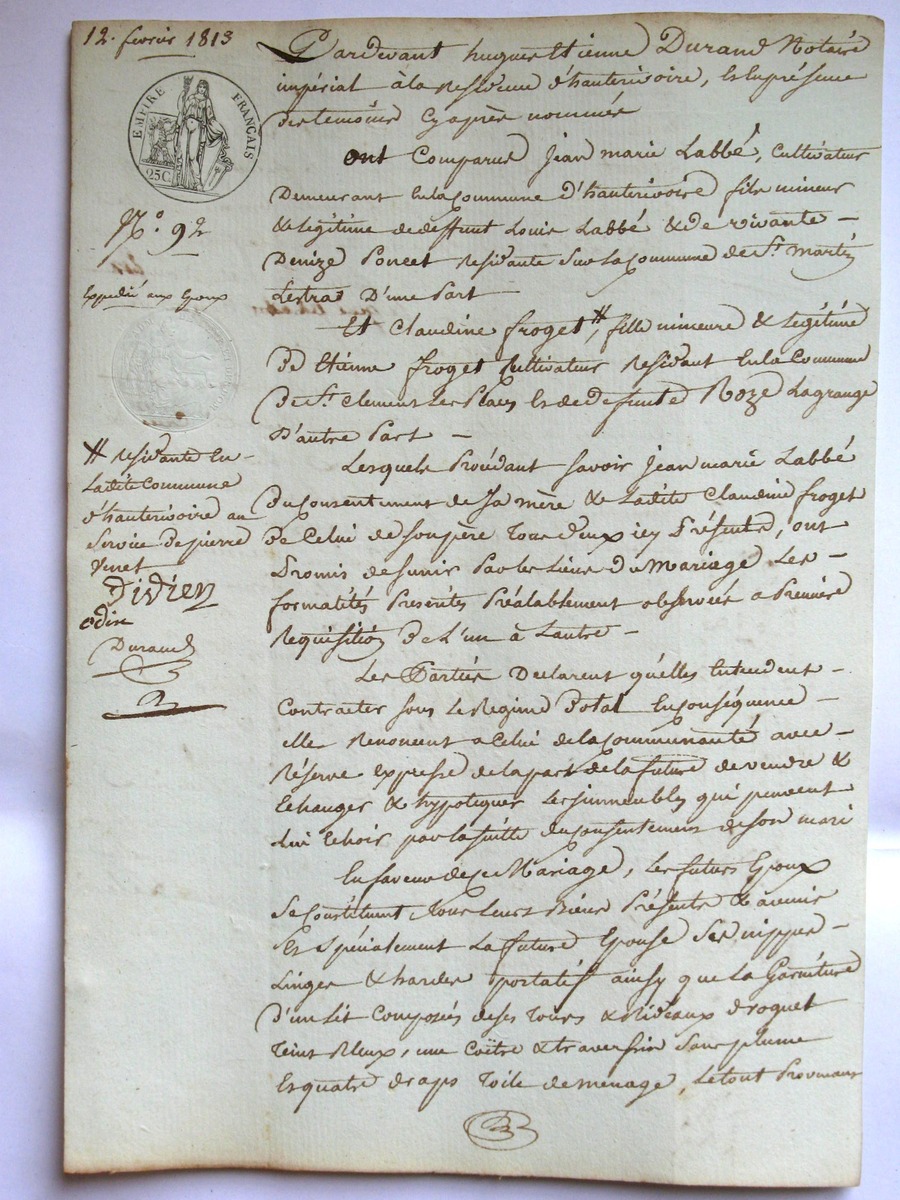 12. fevrier 1813
EMPIRE FRANÇAIS
25C
N.º 92
Expedié aux Epoux
Pardevant hugues Etienne Durand Notaire
impérial à la Residence d'hauterivoire, Et En présence
des temoins Cy après nommés
ont Comparus Jean marie Labbé, Cultivateur
Demeurant En la Commune d'hauterivoire fils mineur
& Légitime de deffunt Louis Labbé & de vivante
Denize Poncet residante Sur La Commune de St. Martin
Lestra D'une Part
Et Claudine froget #, fille mineure & Légitime
De Etienne froget Cultivateur Residant En la Commune
De St. Clement Les Places Et de Defunte Roze Lagrange
D'autre Part
# residante En
Ladite Commune
d'hauterivoire au
Service de pierre
Venet
Didien
odin
Durand
Lesquels Procédant savoir Jean marie Labbé
Du Consentement de Sa mère & Ladite Claudine froget
De Celui de son père Tous deux icy Présents, ont
Promis de s'unir Par les Liens Du Mariage Les
formalités Presentes Préalablement observées a Première
Requisition De L'un à Lautre
Les Parties Declarent qu'elles Entendent
Contracter sous Le Regime Dotal En Conséquence
elle Renoncent a Celui de la Communauté avec
Réserve Expresse de la part de la future de vendre &
Echanger & hypotequer Les immeubles qui peuvent
Lui Echoir par la suitte du Consentement de Son mari
En faveur de ce Mariage, Les futurs Epoux
Se Constituent Tous Leurs Biens Présents & avenir
Et Spécialement La future Epouse Ses nippes
Linges & hardes portatif ainsy que La Garniture
D'un Lit Composés de ses Tours & Rideaux droguet
Teint Bleux, une Coëtre & traversin Sans plume
Et quatre draps Toile de menage, Le tout Provenant